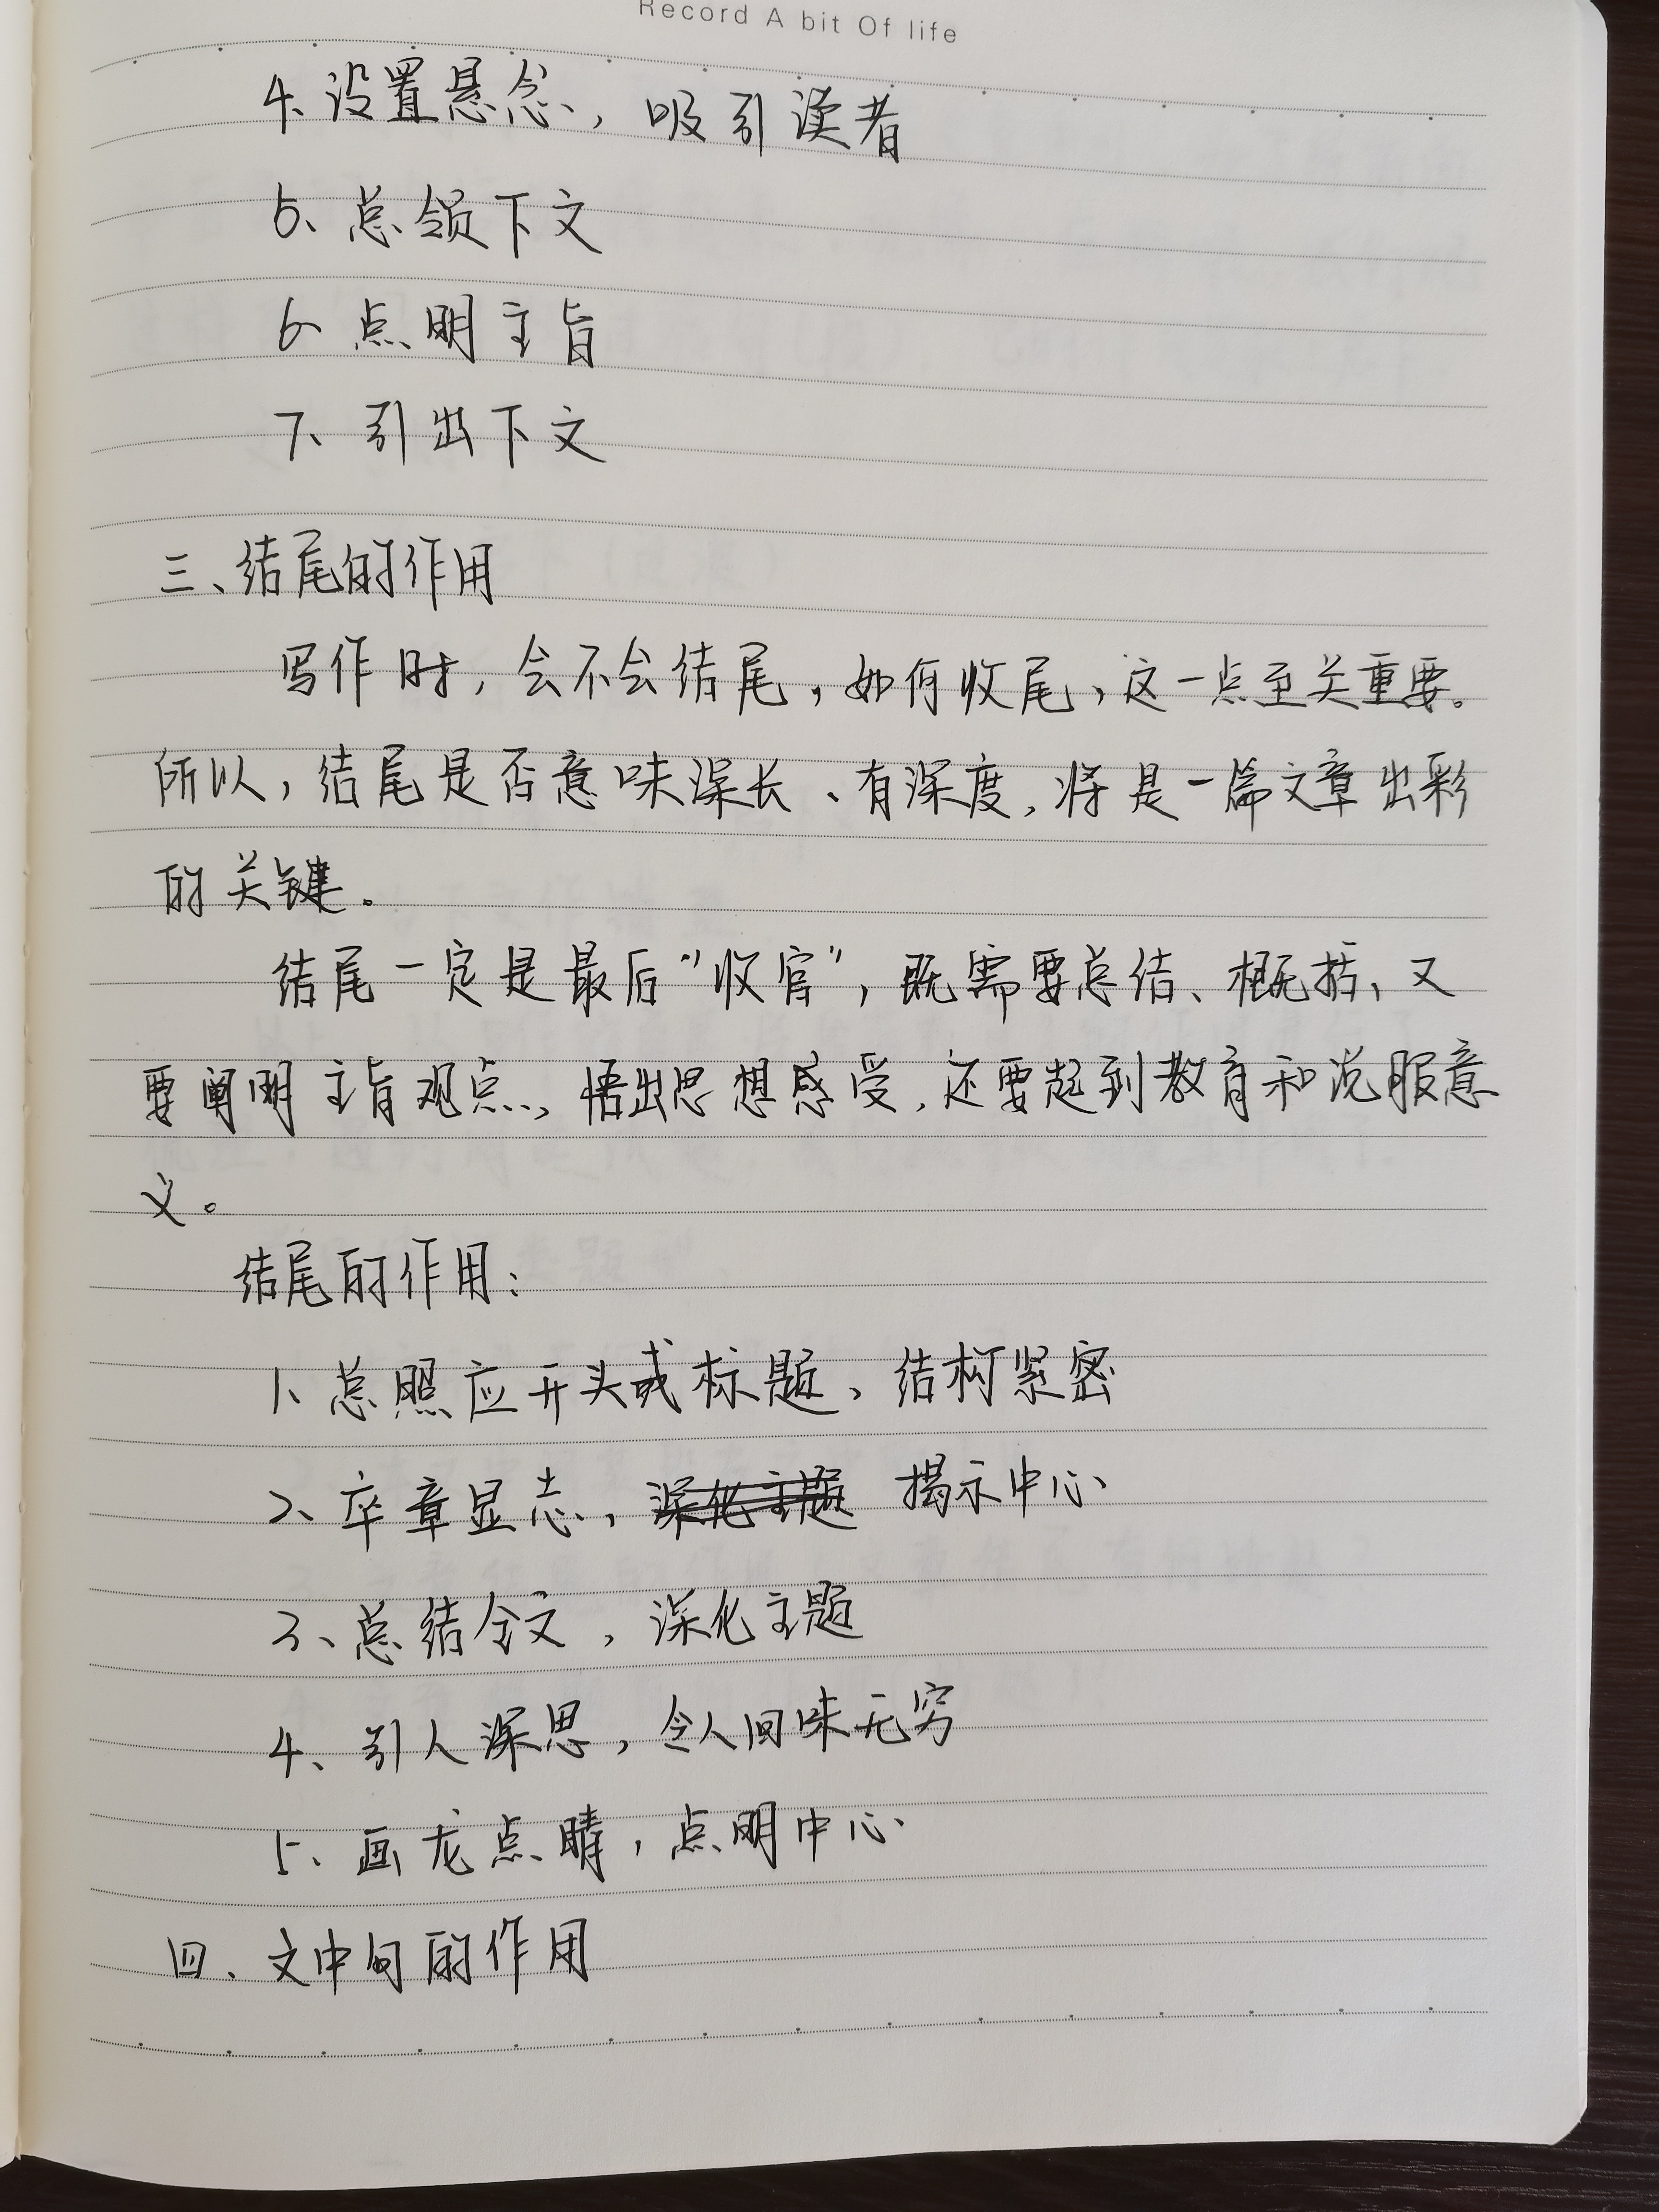 Record A bit Of life
4、设置悬念，吸引读者
5、总领下文
6、点明主旨
7、引出下文
三、结尾的作用
写作时，会不会结尾，如何收尾，这一点至关重要。
所以，结尾是否意味深长、有深度，将是一篇文章出彩
的关键。
结尾一定是最后“收官”，既需要总结、概括，又
要阐明主旨观点，悟出思想感受，还要起到教育和说服意
义。
结尾的作用：
1、总照应开头或标题，结构紧密
2、卒章显志，深化主题 揭示中心
3、总结全文，深化主题
4、引人深思，令人回味无穷
5、画龙点睛，点明中心
四、文中句的作用